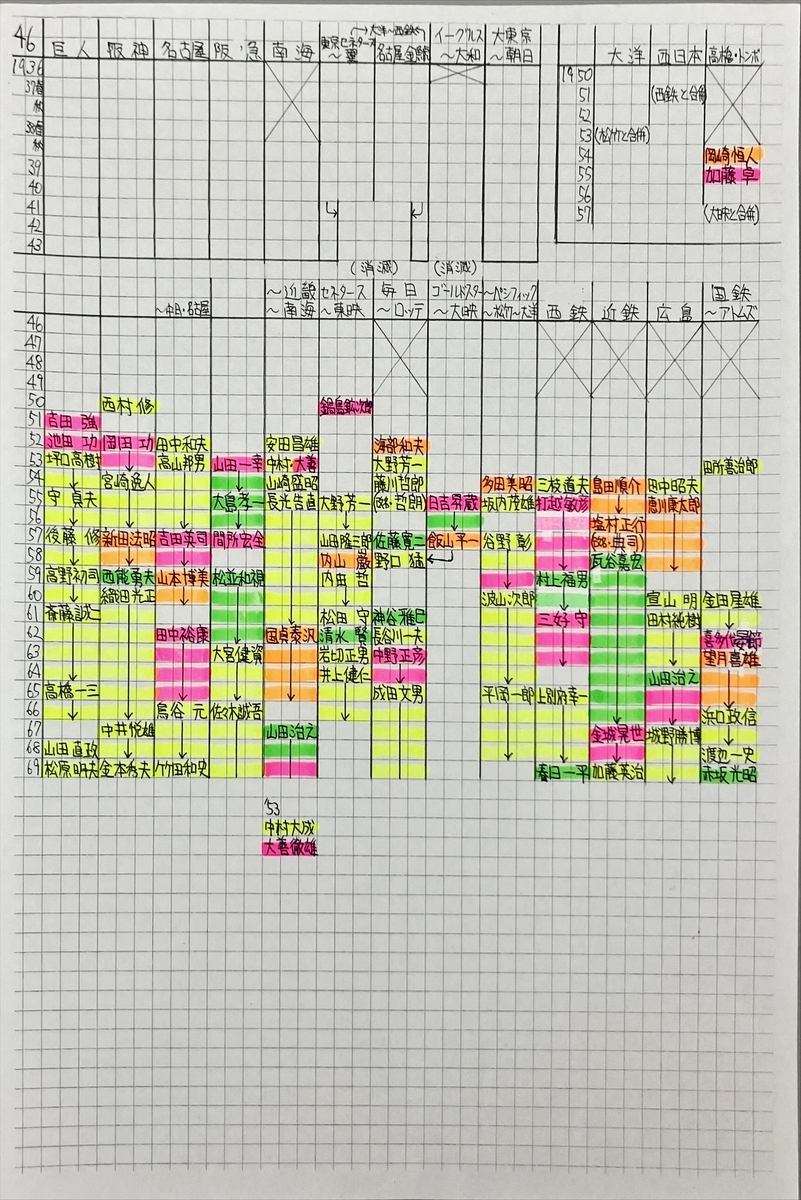 46 巨人 阪神 名古屋 阪急 南海 東京セネタース〜翼 (→大洋〜西鉄へ) 名古屋金鯱 イーグルス〜大和 大東京〜朝日 大洋 西日本 高橋・トンボ
1936 1950
37春 51 (西鉄と合併)
秋 52
38春 53 (松竹と合併)
秋 54 岡崎恒人
39 55 加藤 卓
40 56
41 57 (大映と合併)
42
43
(消滅) (消滅)
〜中日・名古屋 〜近畿〜南海 セネタース〜東映 毎日〜ロッテ ゴールドスター〜大映 〜パシフィック〜松竹〜大洋 西鉄 近鉄 広島 国鉄〜アトムズ
46
47
48
49
50 西村 修
51 吉田 強
52 池田 功 岡田 功 田中和夫 安田昌雄 海部和夫
53 坪口高樹 高山邦男 山田一幸 中村・大善 大野芳一 田所善治郎
54 宮崎逸人 山崎盛昭 藤川哲郎 多田美昭 三枝道夫 島田順介 田中昭夫
55 守 貞夫 大島孝一 長光告直 大野芳一 (哲朗) 日吉昇蔵 坂内茂雄 打越敏彦 恵川康太郎
56 塩村正行
57 後藤 修 新田法昭 吉田英司 間所宏全 山田隆三郎 佐藤寛二 飯山平一 谷野 彰 (典司)
58 内山 巌 野口 猛 瓦谷嘉宏
59 高野初司 西能勇夫 山本博美 松並和視 内田 哲 村上福男
60 織田光正 波山次郎 宣山 明 金田星雄
61 斎藤誠二 松田 守 神谷雅巳 三好 守 田村純樹
62 田中裕康 国貞泰汎 清水 賢 長谷川一夫 喜多代晏節
63 大宮健資 岩切正男 中野正彦 望月喜雄
64 井上健仁 山田治之
65 高橋一三 成田文男 平岡一郎 上別府幸一
66 鳥谷 元 佐々木誠吾 浜口政信
67 中井悦雄 山田治之 金城晃世 城野勝博
68 山田直政 渡辺一史
69 松原明夫 金本秀夫 竹田和史 春日一平 加藤英治 赤坂光昭
'53
中村大成
大善徹雄